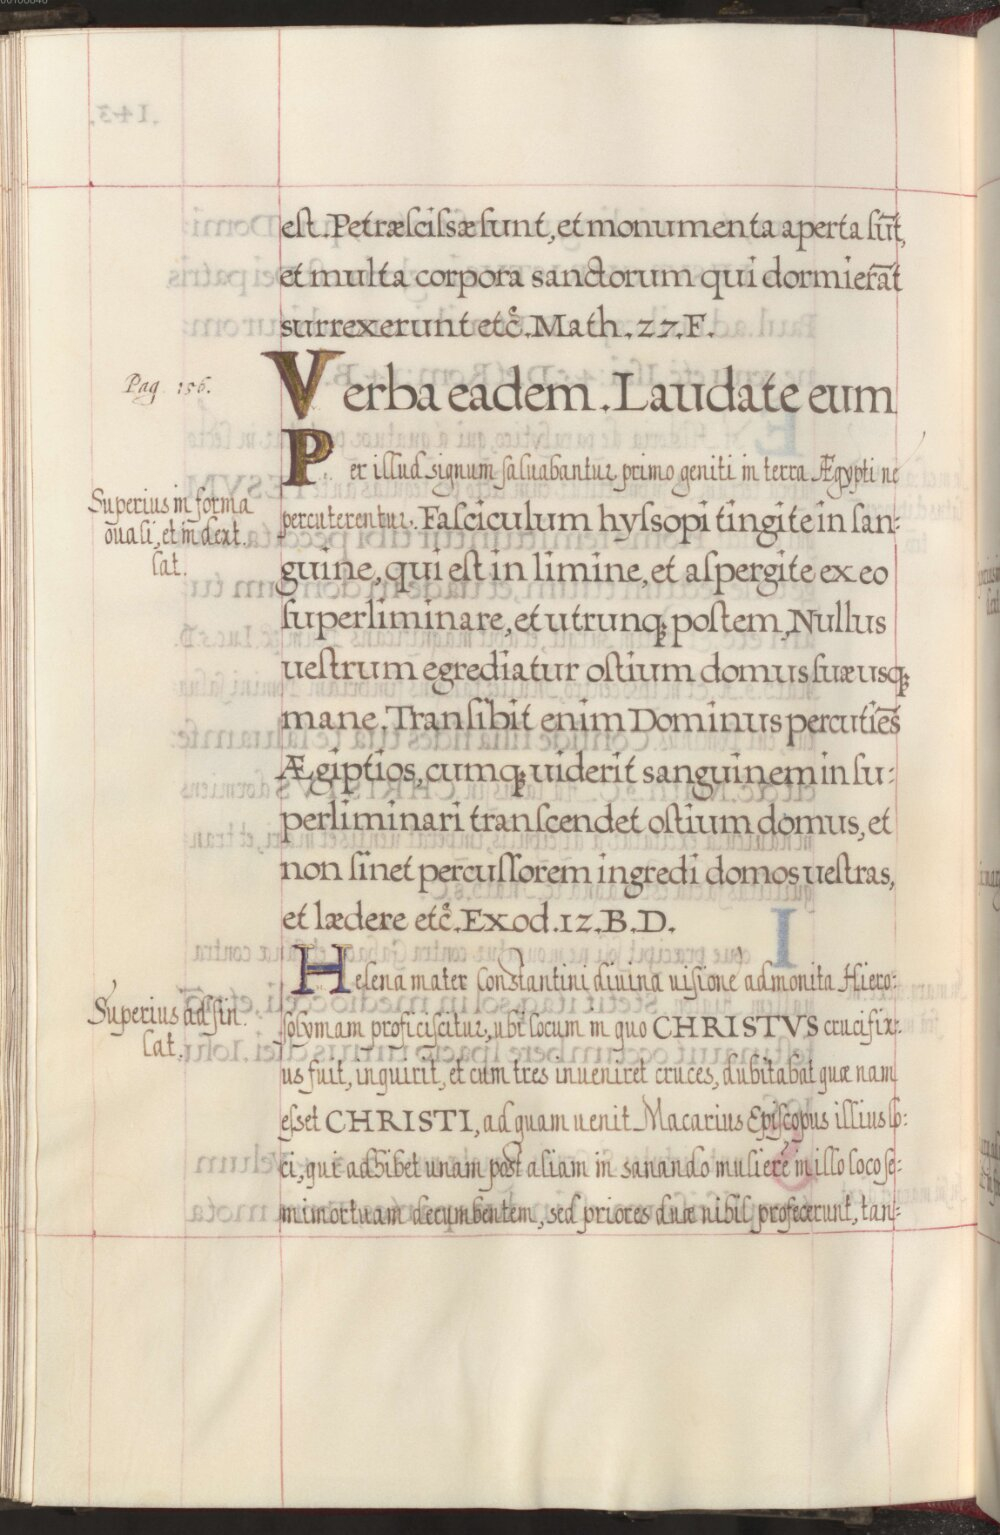 est. Petræ scissæ sunt, et monumenta aperta sūt,
et multa corpora sanctorum qui dormierāt
surrexerunt etc̊. Math. 27. F.
Pag. 156.
Verba eadem. Laudate eum
Per illud signum saluabantur primo geniti in terra Ægypti ne
Superius in forma
ouali, et in dext.
lat.
percuterentur. Fasciculum hyssopi tingite in san:
guine, qui est in limine, et aspergite ex eo
superliminare, et utrunq; postem, Nullus
uestrum egrediatur ostium domus suæ usq;
mane. Transibit enim Dominus percutiēs
Ægiptios, cumq; uiderit sanguinem in su:
perliminari transcendet ostium domus, et
non sinet percussorem ingredi domos uestras,
et lædere etc̊. Exod. 12. B. D.
Helena mater Constantini diuina uisione admonita Hiero:
Superius ad sin.
lat.
solymam proficiscitur, ubi locum in quo CHRISTVS crucifix:
us fuit, inquirit, et cum tres inueniret cruces, dubitabat quæ nam
esset CHRISTI, ad quam uenit Macarius Episcopus illius lo:
ci, qui adhibet unam post aliam in sanando mulierē in illo loco se:
mimortuam decumbentem, sed priores duæ nihil profecerunt, tan: